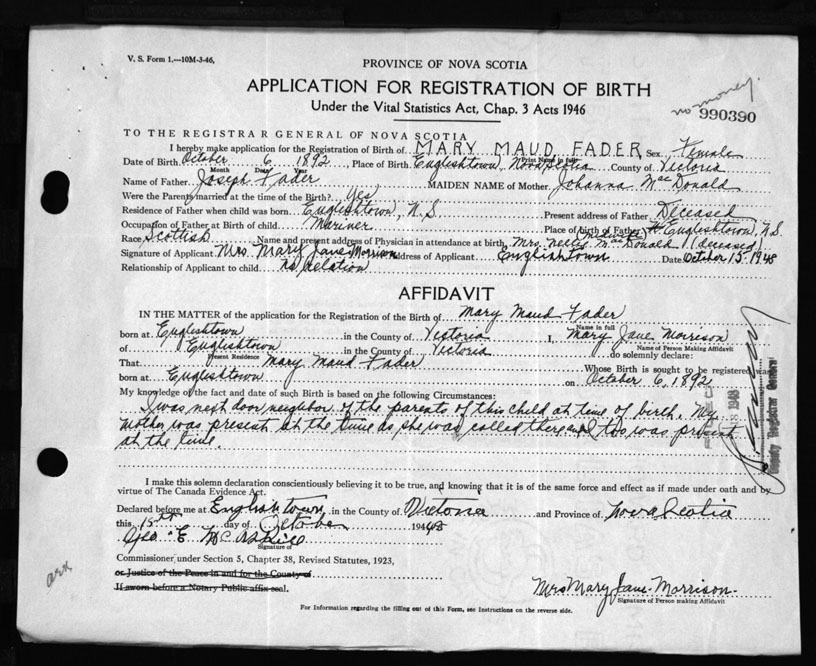 V. S. Form 1.—10M-3-46,
PROVINCE OF NOVA SCOTIA
APPLICATION FOR REGISTRATION OF BIRTH
Under the Vital Statistics Act, Chap. 3 Acts 1946
no money.
990390
TO THE REGISTRAR GENERAL OF NOVA SCOTIA
I hereby make application for the Registration of Birth of MARY MAUD FADER Sex Female
Print Name in full
Date of Birth October 6 1892, Place of Birth Englishtown, Nova Scotia County of Victoria
Month Date Year
Name of Father Joseph Fader MAIDEN NAME of Mother Johanna MacDonald
Were the Parents married at time of the Birth? Yes
Residence of Father when child was born Englishtown, N.S. Present address of Father Deceased
Occupation of Father at Birth of child Mariner Place of birth of Father Englishtown, N.S.
Race Scottish Name and present address of Physician in attendance at birth Mrs. Nellie MacDonald (deceased)
Midwife
Signature of Applicant Mrs Mary Jane Morrison Address of Applicant Englishtown Date October 15, 1948
Relationship of Applicant to child no relation
AFFIDAVIT
IN THE MATTER of the application for the Registration of the Birth of Mary Maud Fader
Name in full
born at Englishtown in the County of Victoria I, Mary Jane Morrison
Name of Person Making Affidavit
of Englishtown in the County of Victoria do solemnly declare:
Present Residence
That Mary Maud Fader Whose Birth is sought to be registered was
born at Englishtown on October 6, 1892
My knowledge of the fact and date of such Birth is based on the following Circumstances:
I was next door neighbor of the parents of this child at time of birth. My
mother was present at the time as she was called there and I too was present
at the time.
1948
Deputy Registrar General
I make this solemn declaration conscientiously believing it to be true, and knowing that it is of the same force and effect as if made under oath and by
virtue of The Canada Evidence Act.
Declared before me at Englishtown in the County of Victoria and Province of Nova Scotia
this 15th day of October 1948
Geo. E. McAskill
Signature of
Commissioner under Section 5, Chapter 38, Revised Statutes, 1923,
or Justice of the Peace in and for the County of
If sworn before a Notary Public affix seal.
Mrs Mary Jane Morrison.
Signature of Person Making Affidavit
For Information regarding the filling out of this Form, see Instructions on the reverse side.